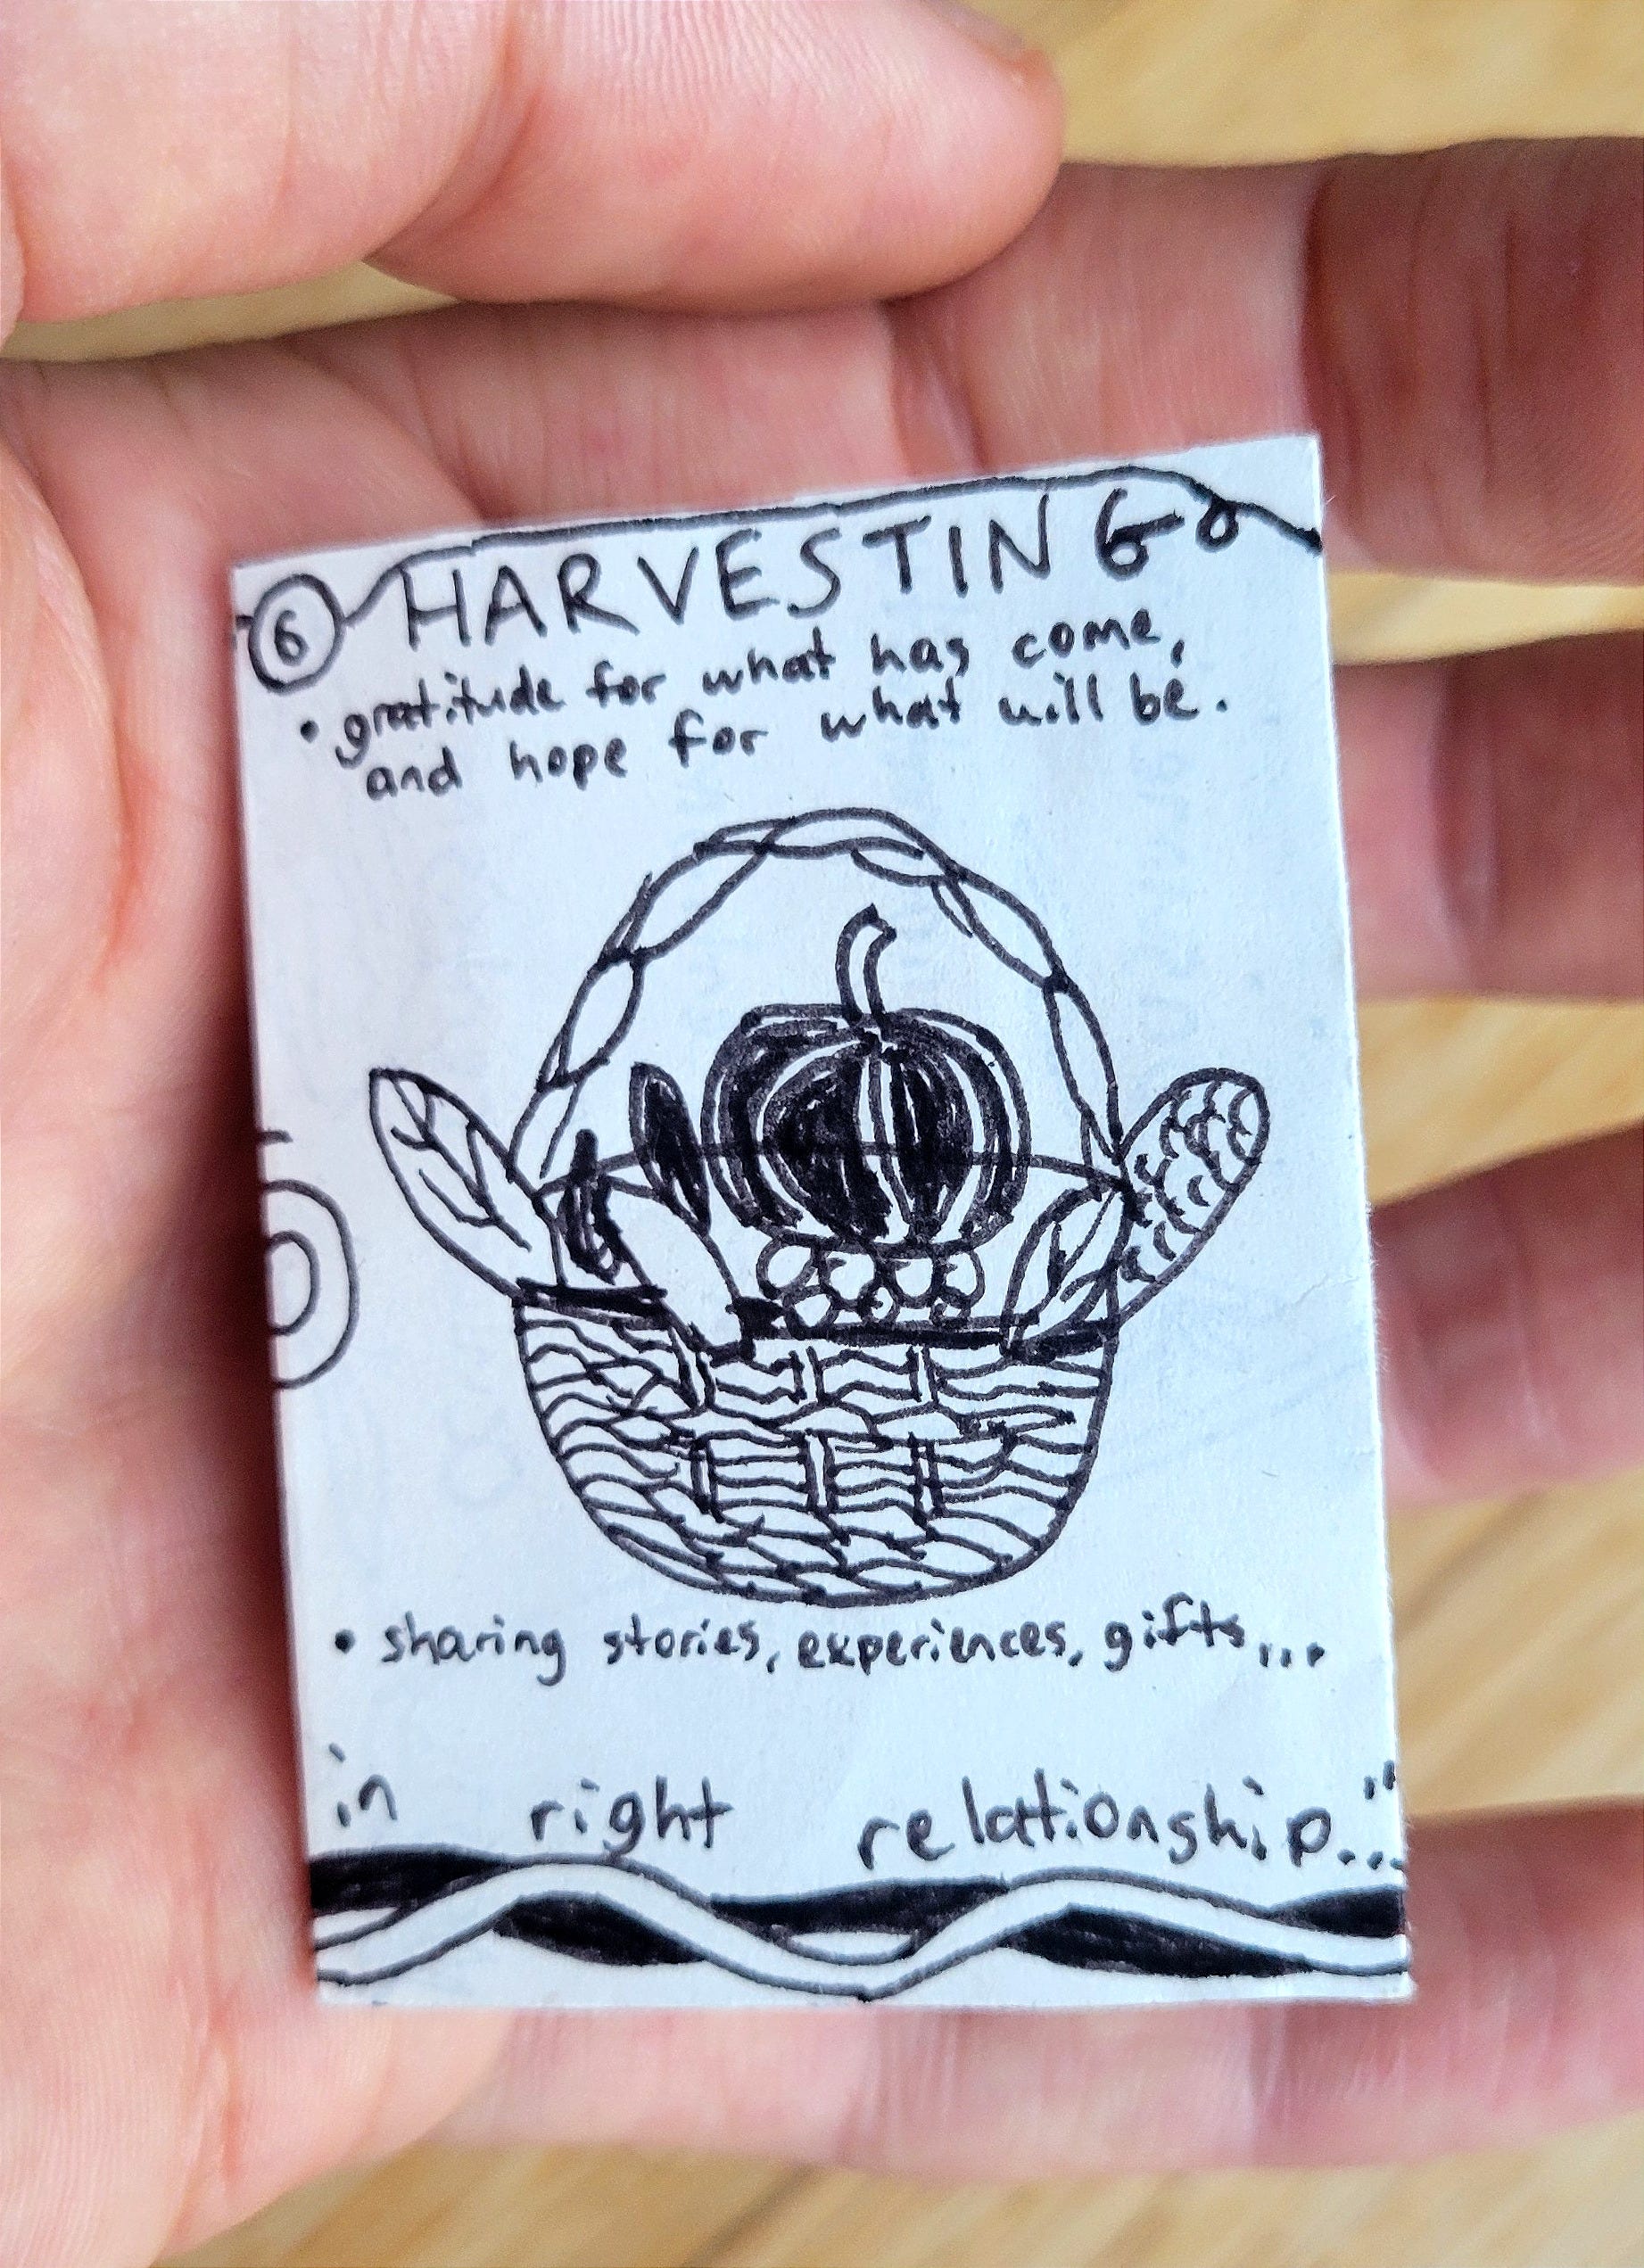 6 HARVESTING
• gratitude for what has come,
and hope for what will be.
• sharing stories, experiences, gifts...
in right relationship..."